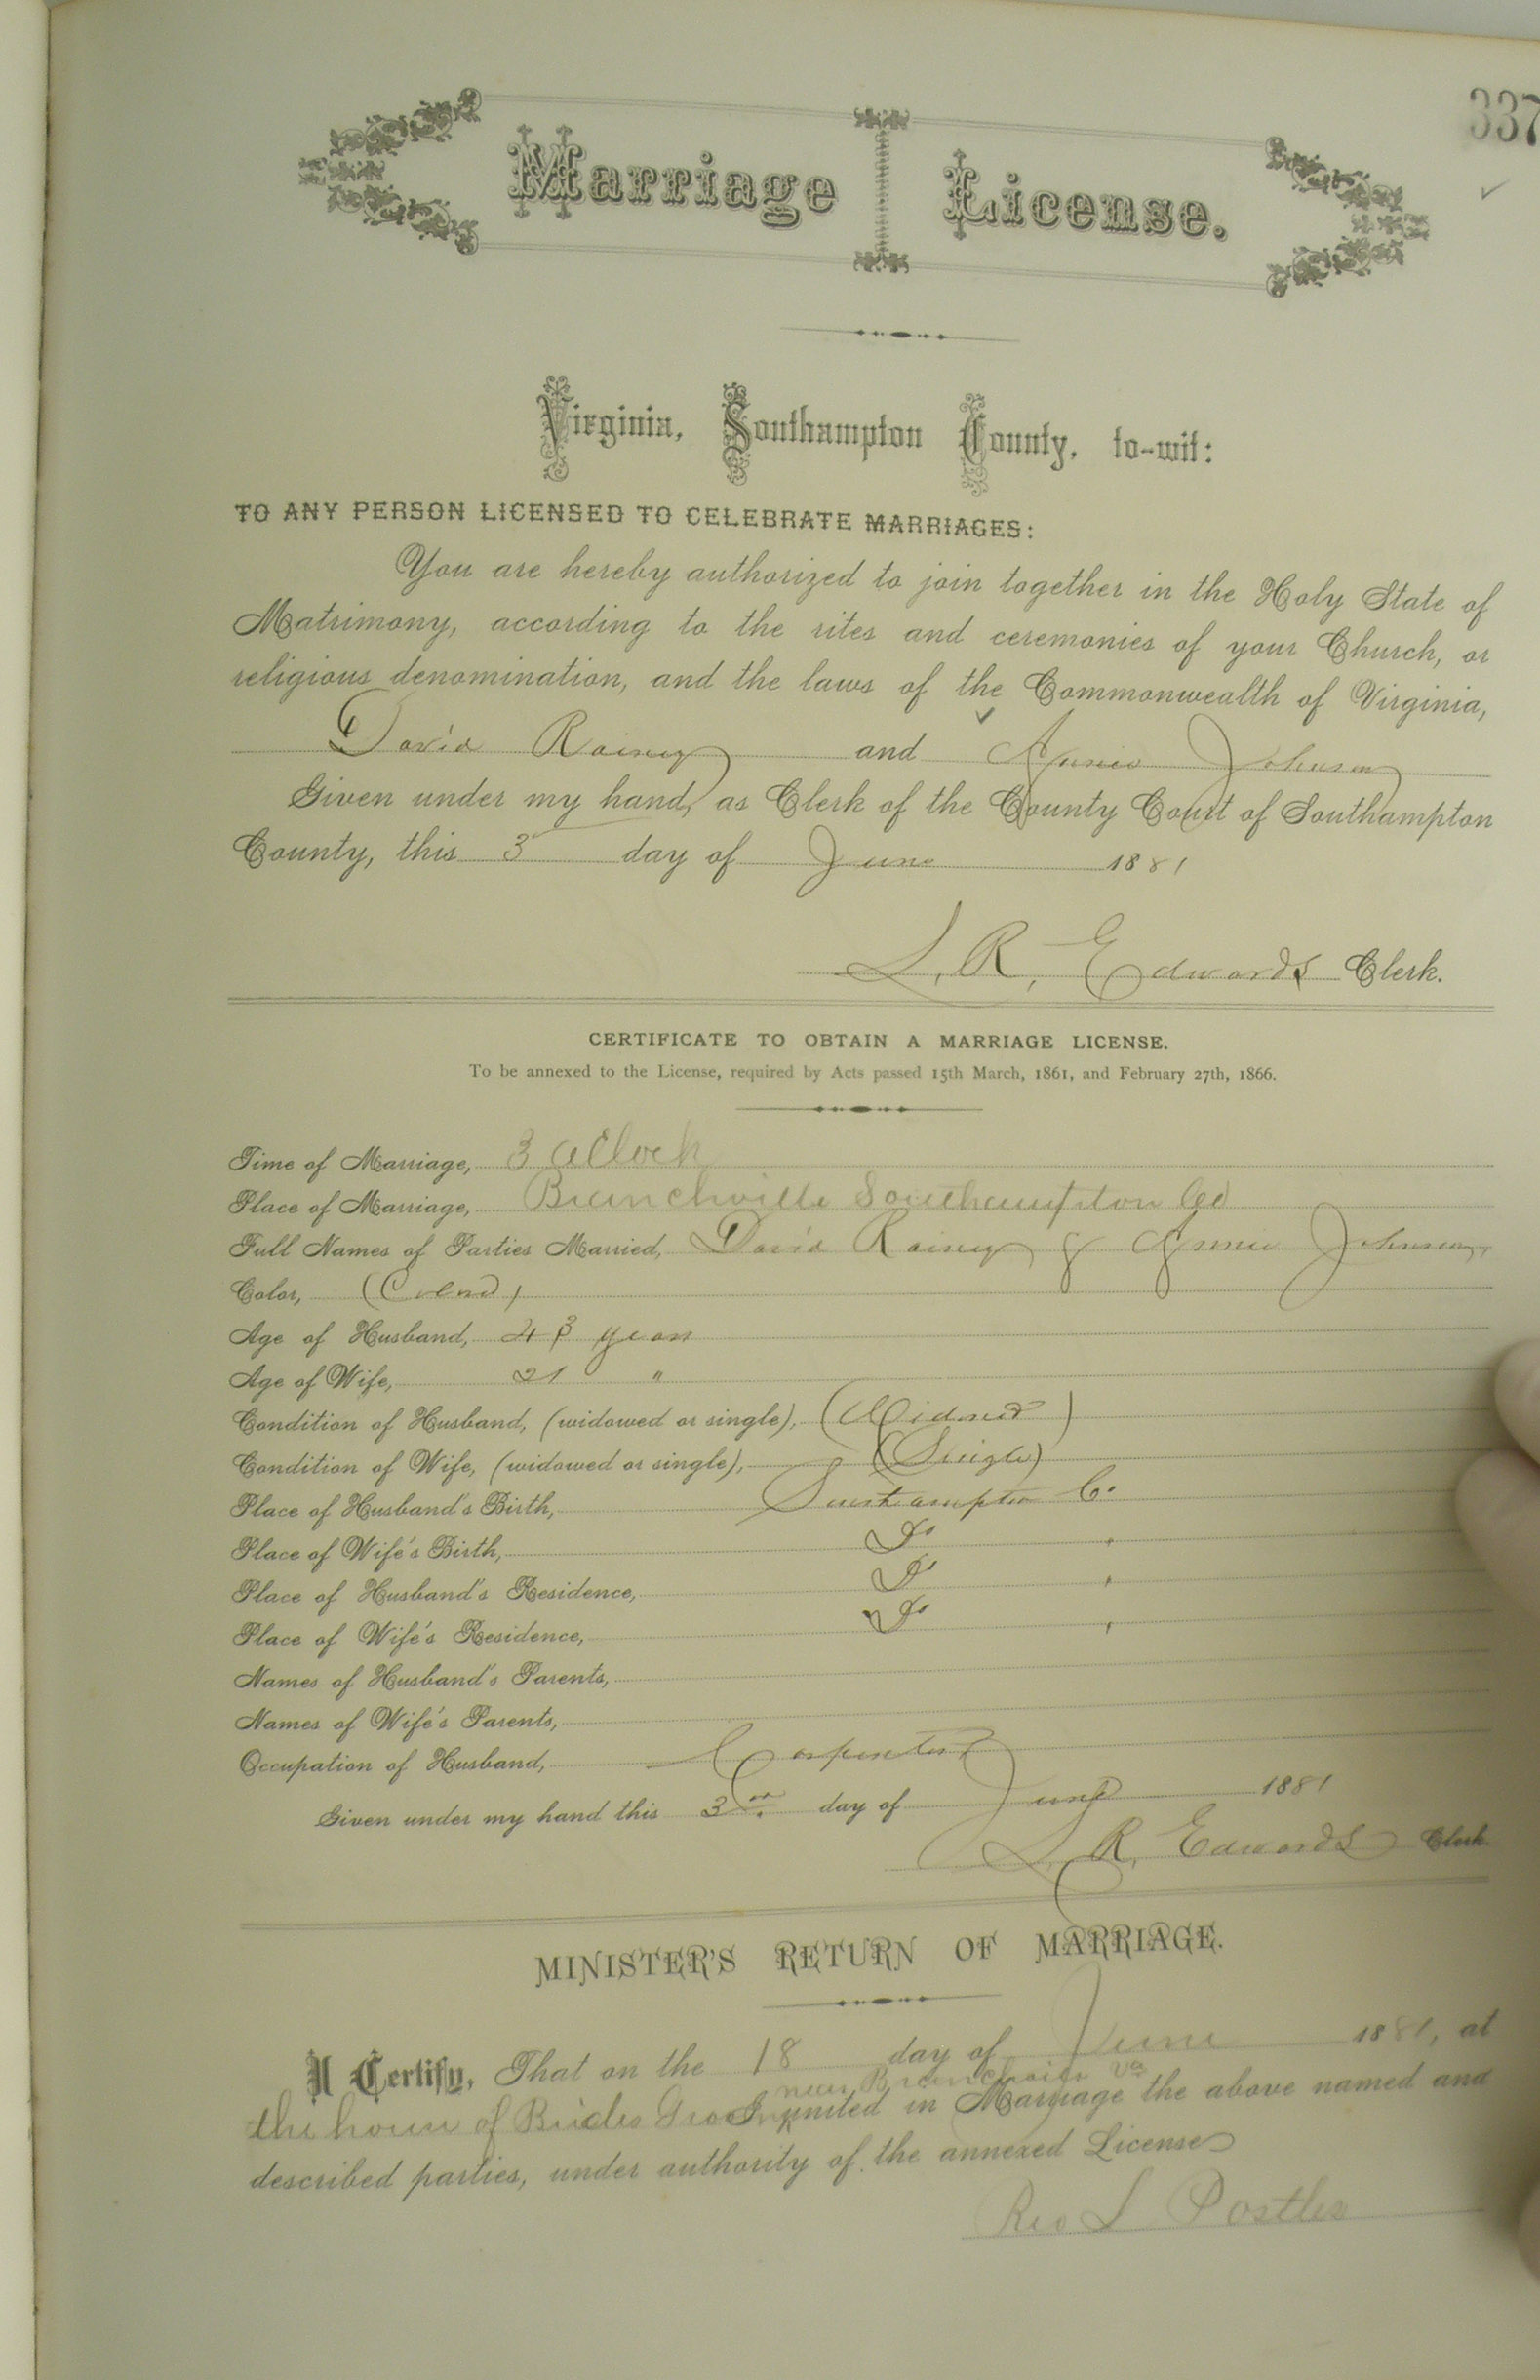 337
Marriage License.
Virginia, Southampton County, to-wit:
TO ANY PERSON LICENSED TO CELEBRATE MARRIAGES:
You are hereby authorized to join together in the Holy State of
Matrimony, according to the rites and ceremonies of your Church, or
religious denomination, and the laws of the Commonwealth of Virginia,
David Rainey and Annie Johnson
Given under my hand, as Clerk of the County Court of Southampton
County, this 3 day of June 1881
L. R. Edwards Clerk.
CERTIFICATE TO OBTAIN A MARRIAGE LICENSE.
To be annexed to the License, required by Acts passed 15th March, 1861, and February 27th, 1866.
Time of Marriage, 3 oClock
Place of Marriage, Branchville Southampton Co
Full Names of Parties Married, David Rainey & Annie Johnson,
Color, (Colord)
Age of Husband, 43 years
Age of Wife, 21 "
Condition of Husband, (widowed or single), (Widowed)
Condition of Wife, (widowed or single), (Single)
Place of Husband's Birth, Southampton Co
Place of Wife's Birth, Do "
Place of Husband's Residence, Do "
Place of Wife's Residence, Do "
Names of Husband's Parents,
Names of Wife's Parents,
Occupation of Husband, Carpenter
Given under my hand this 3rd day of June 1881
L. R. Edwards Clerk.
MINISTER'S RETURN OF MARRIAGE.
I Certify, That on the 18 day of June 1881, at
near Branchville Va
the house of Brides Groom I united in Marriage the above named and
described parties, under authority of the annexed License
Rev L Postles